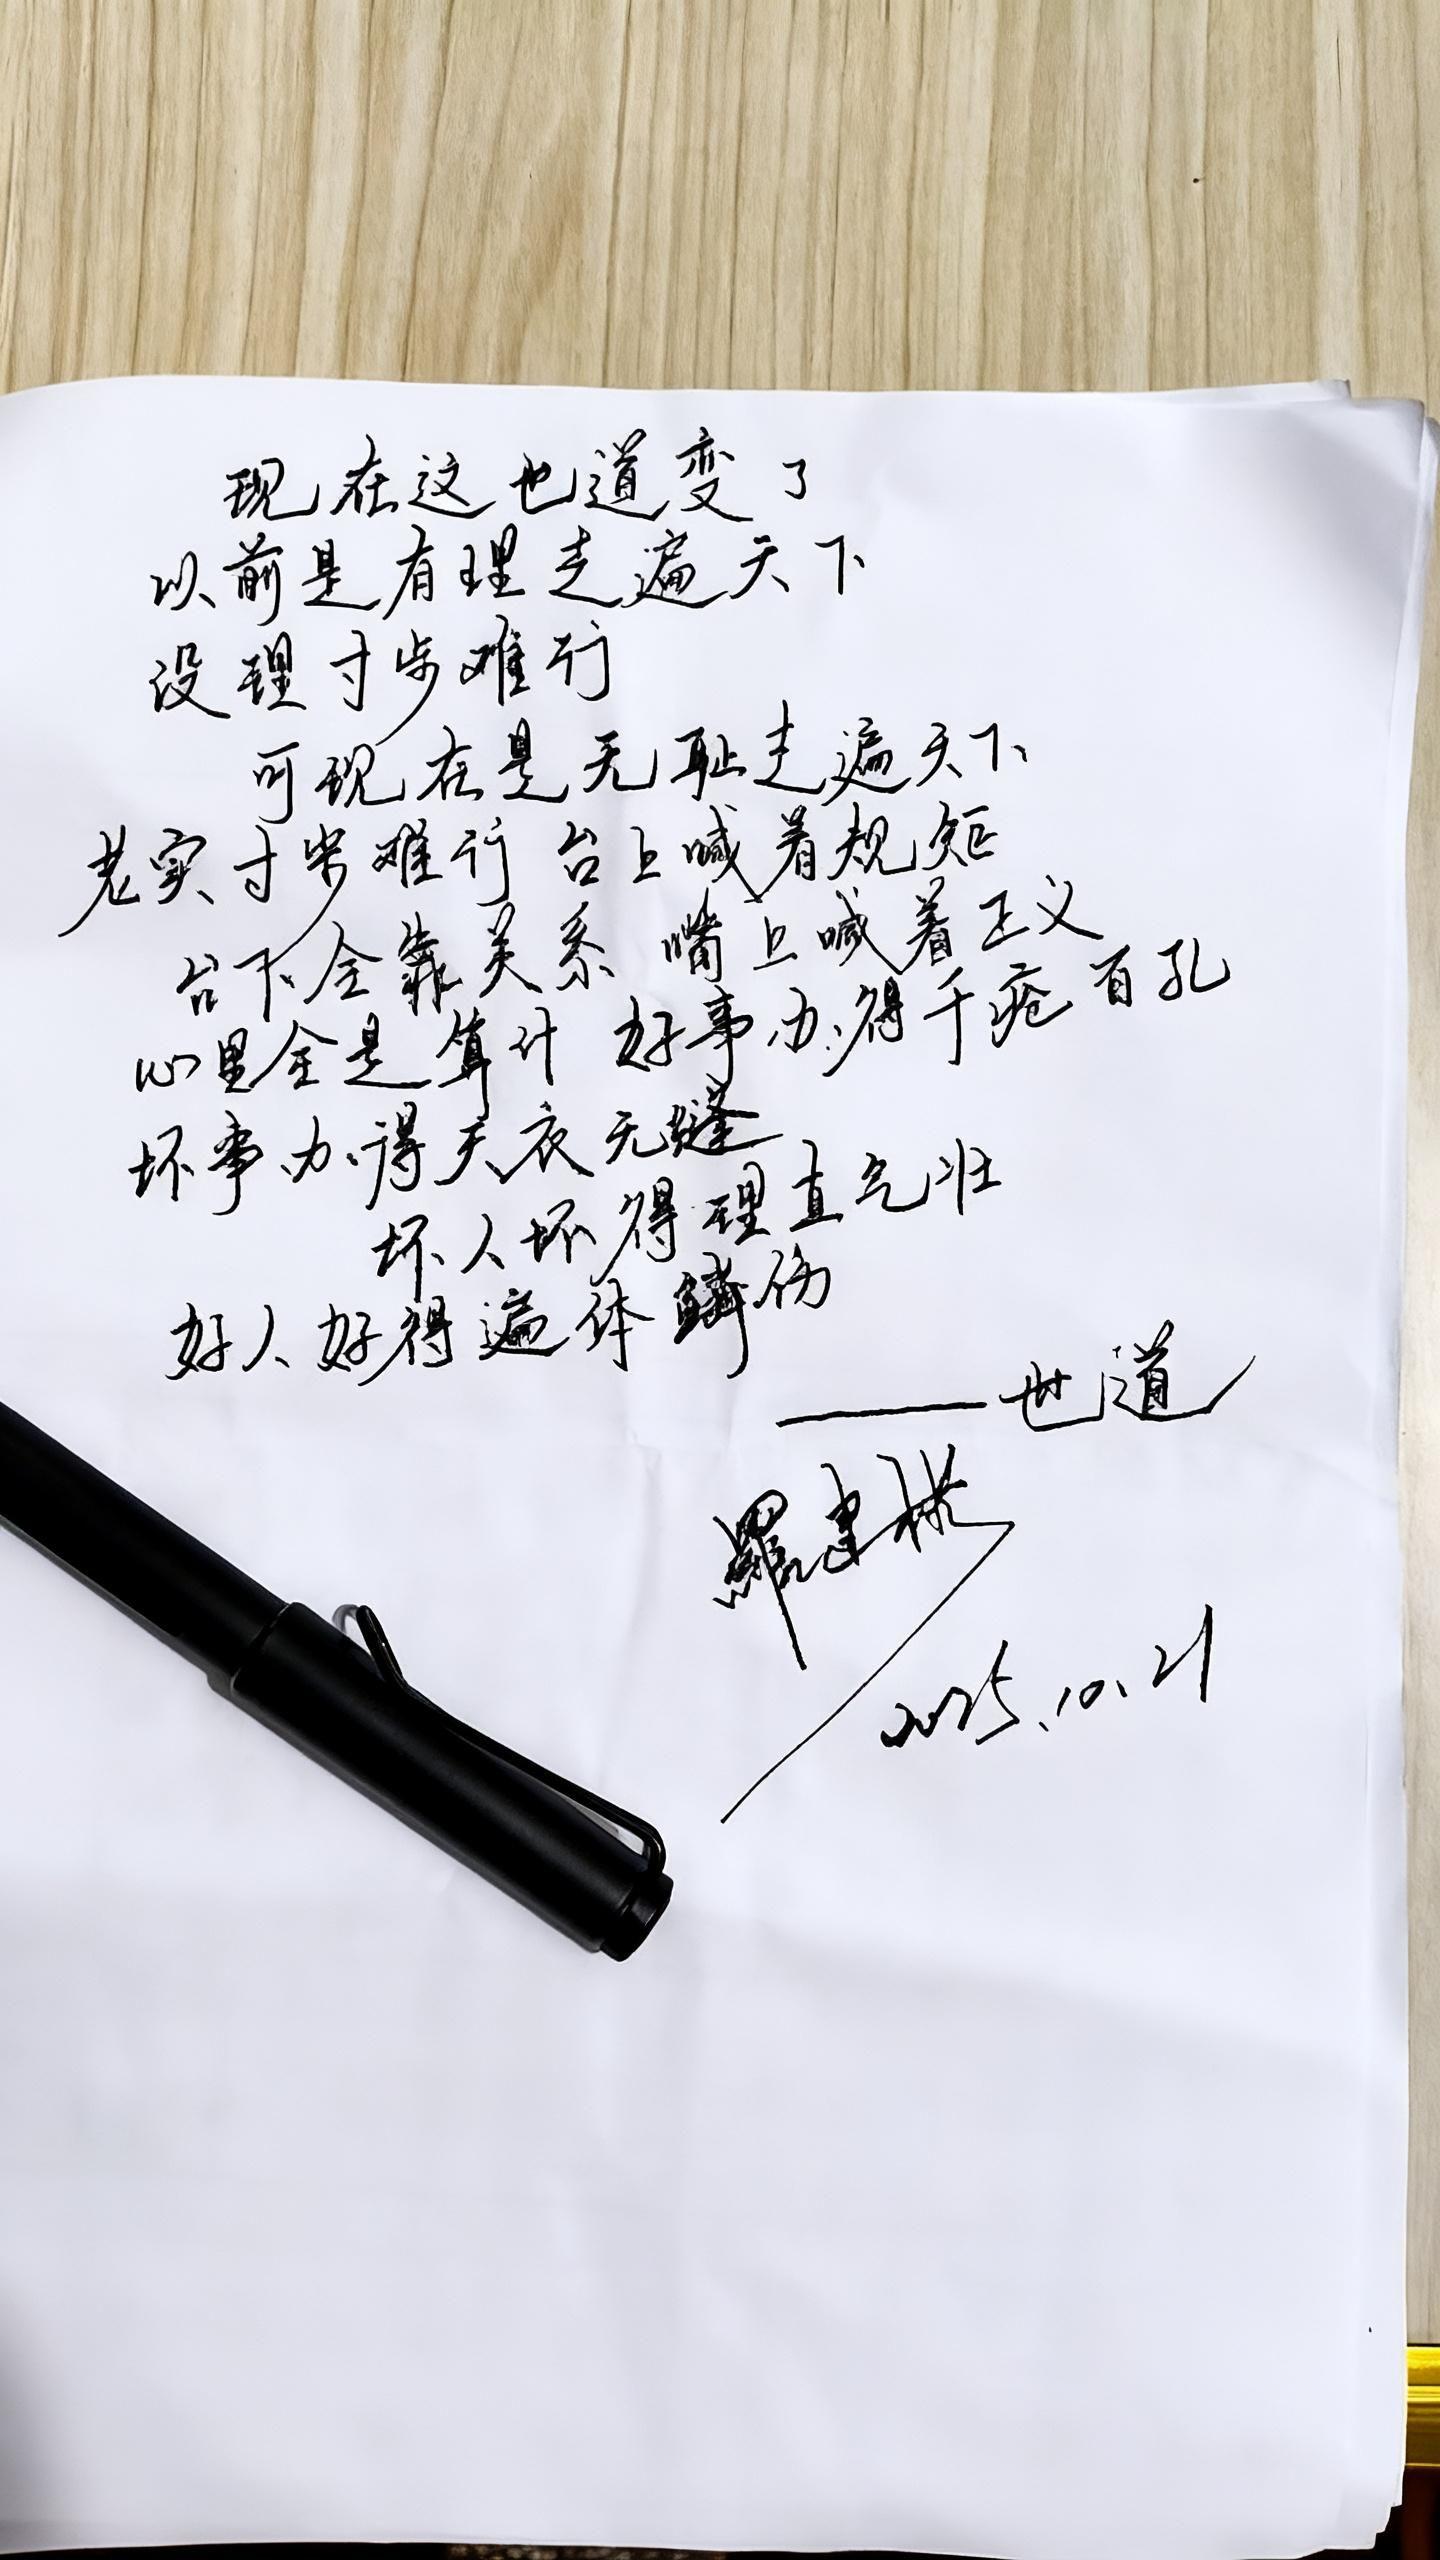 现在这世道变了
以前是有理走遍天下
没理寸步难行
可现在是无耻走遍天下
老实寸步难行 台上喊着规矩
台下全靠关系 嘴上喊着正义
心里全是算计 好事办得千疮百孔
坏事办得天衣无缝
坏人坏得理直气壮
好人好得遍体鳞伤
——世道
羅建
2025.10.21